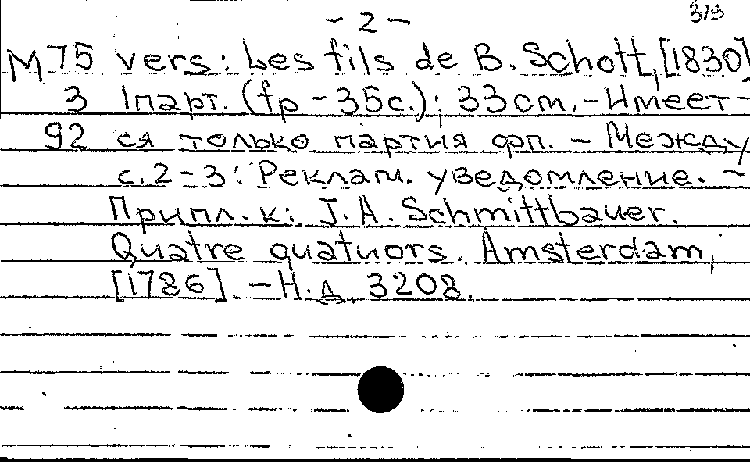 - 2 -
3/3
М75 vers: Les fils de B. Schott, [1830]
3 1парт. (fp - 35с.); 33cm. - Имеет-
92 ся только партия фп. - Между
с. 2-3: Реклам. уведомление. -
Припл. к: J. A. Schmittbauer.
Quatre quatuors. Amsterdam,
[1786]. - Н.д. 3208.